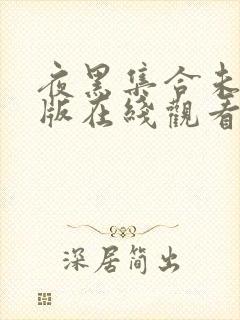 夜黑集合未
版在綫觀看
深居简出